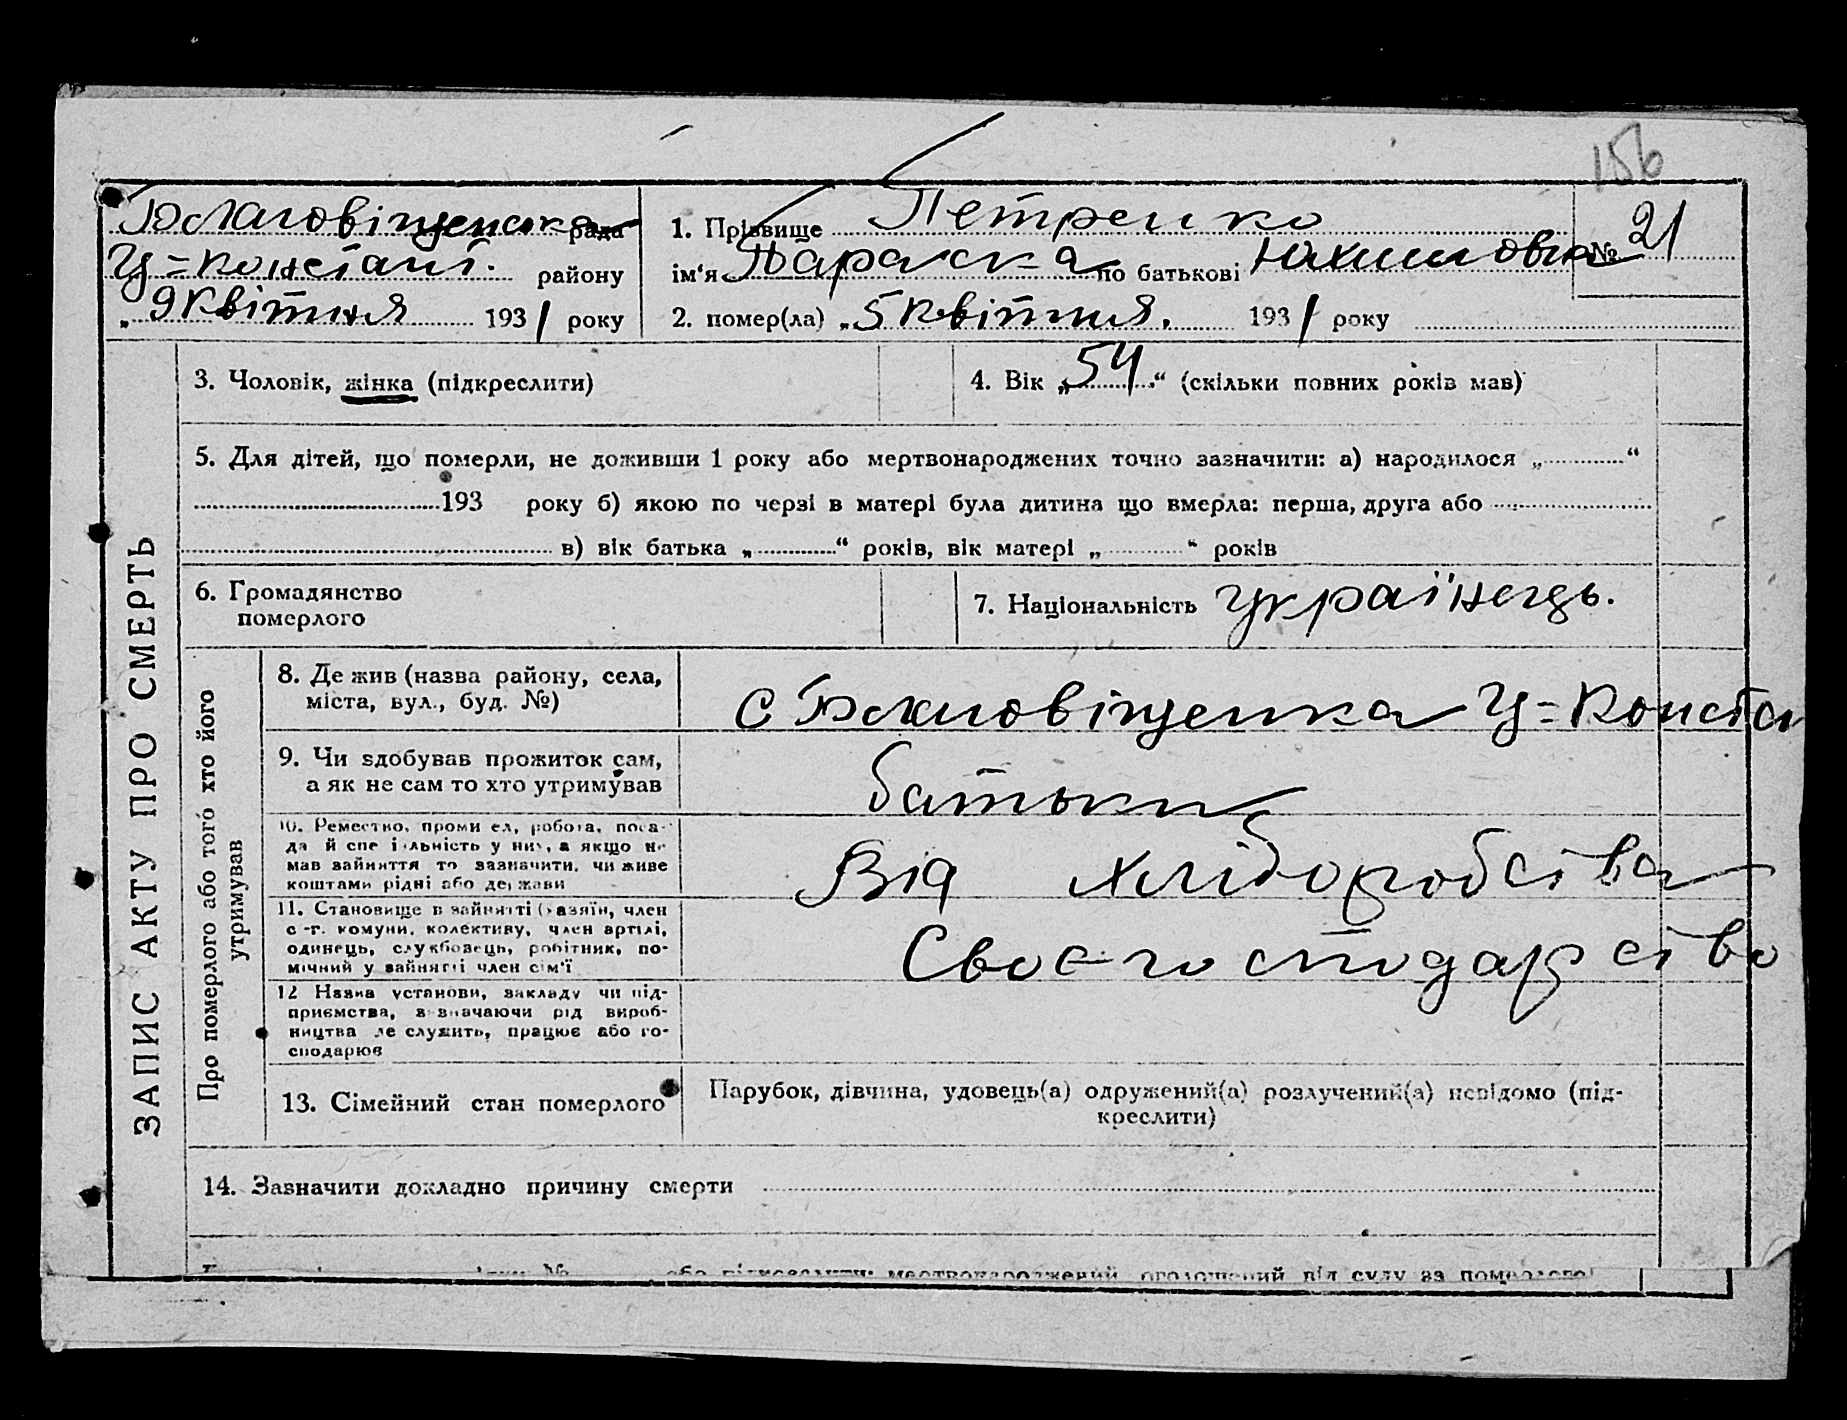 156
Благовіщенська рада
Ц=Констант. району
„ 9 Квітня 1931 року
1. Прізвище Петренко
№ 21
ім'я Параска по батькові Юхимовна
2. помер(ла) „ 5 Квітня. 1931 року
ЗАПИС АКТУ ПРО СМЕРТЬ
3. Чоловік, жінка (підкреслити)
4. Вік „ 54 “ (скільки повних років мав)
5. Для дітей, що померли, не доживши 1 року або мертвонароджених точно зазначити: а) народилося „ “
193 року б) якою по черзі в матері була дитина що вмерла: перша, друга або
в) вік батька „ “ років, вік матері „ “ років
6. Громадянство
померлого
7. Національність Українець.
Про померлого або того хто його
утримував
8. Де жив (назва району, села,
міста, вул., буд. №)
с Благовіщенка Ц=Конста
9. Чи здобував прожиток сам,
а як не сам то хто утримував
батьки
10. Реместно, проми ел, робота, поса-
да й спе і льність у них, а якщо не
мав зайняття то зазначити, чи живе
коштами рідні або держави
Від хліборобства
11. Становище в зайнятті (хазяїн, член
с-г. комуни, колективу, член артілі,
одинець, службовець, робітник, по-
мічний у зайнятті член сім'ї
Своє господарство
12 Назва установи, закладу чи під-
приємства, зазначаючи рід вироб-
ництва де служить, працює або го-
сподарює
13. Сімейний стан померлого
Парубок, дівчина, удовець(а) одружений(а) розлучений(а) невідомо (під-
креслити)
14. Зазначити докладно причину смерти
№ або підкреслити: мертвонароджений, оголошений від суду за померлого